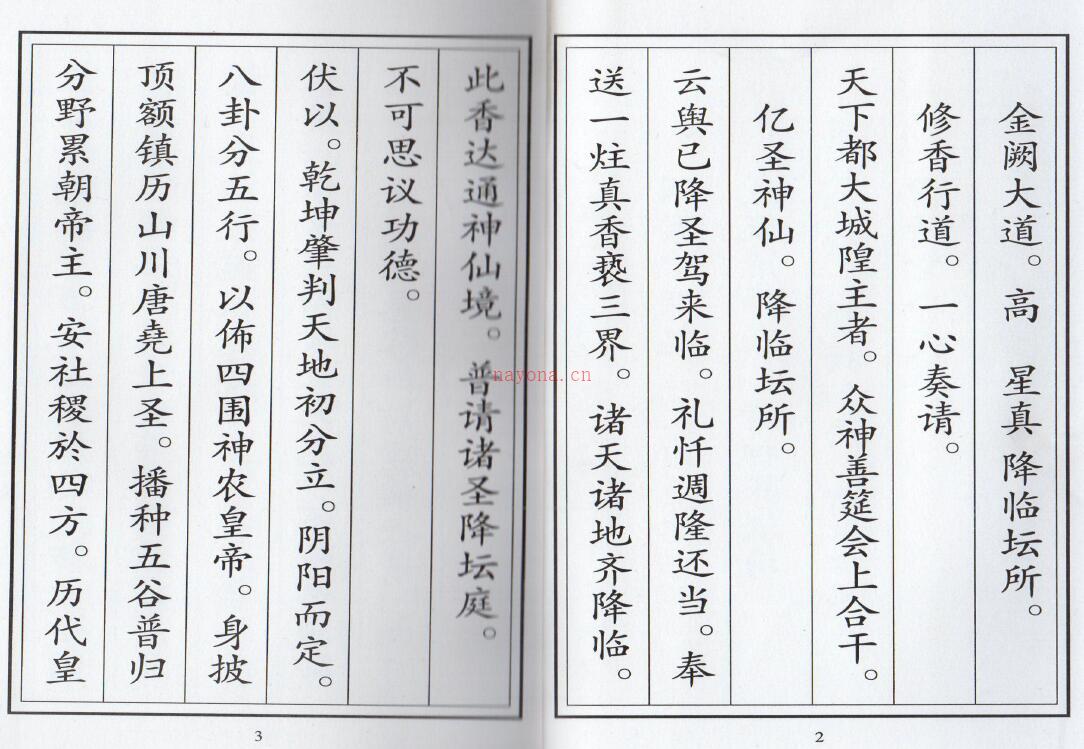 金阙大道。高 星真降临坛所。
修香行道。一心奏请。
天下都大城隍主者。众神善筵会上合干。
亿圣神仙。降临坛所。
云舆已降圣驾来临。礼忏週隆还当。奉
送一炷真香亵三界。诸天诸地齐降临。
2
此香达通神仙境。普请诸圣降坛庭。
不可思议功德。
伏以。乾坤肇判天地初分立。阴阳而定。
八卦分五行。以佈四围神农皇帝。身披
顶额镇历山川唐尧上圣。播种五谷普归
分野累朝帝主。安社稷於四方。历代皇
3
nayona.cn